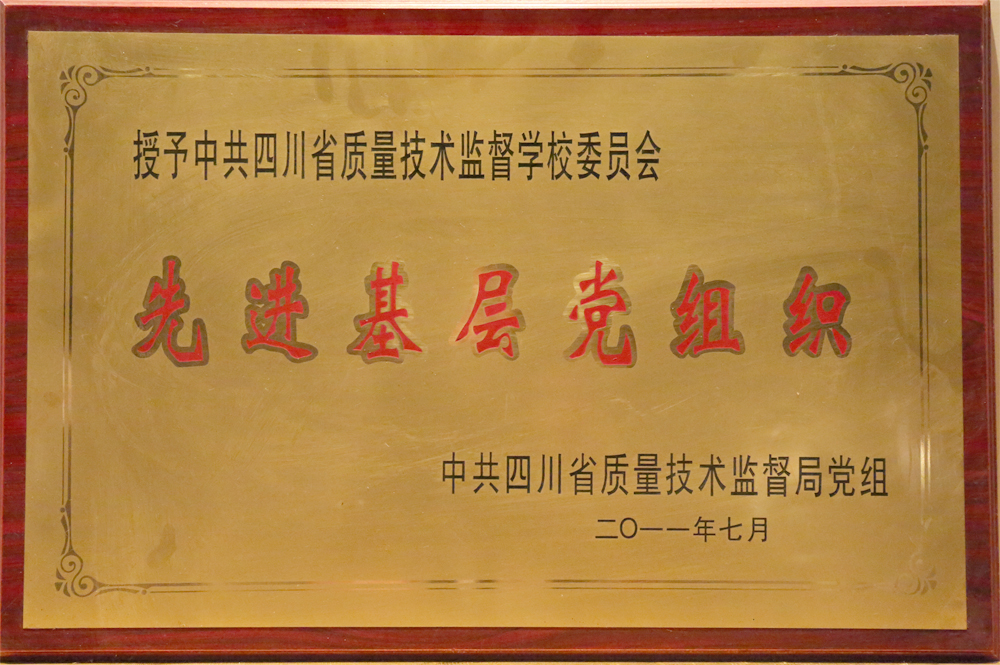 授予中共四川省质量技术监督学校委员会
先进基层党组织
中共四川省质量技术监督局党组
二〇一一年七月